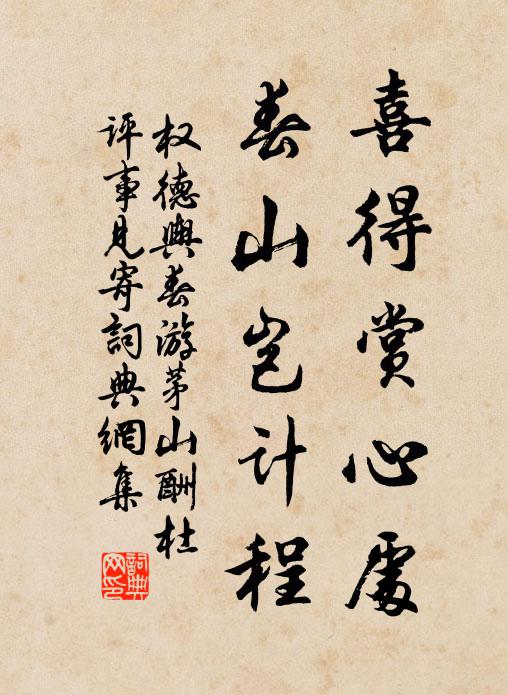 喜得赏心處
春山岂计程
权德輿春游茅山酬杜
评事見寄詞典網集
詞典网印